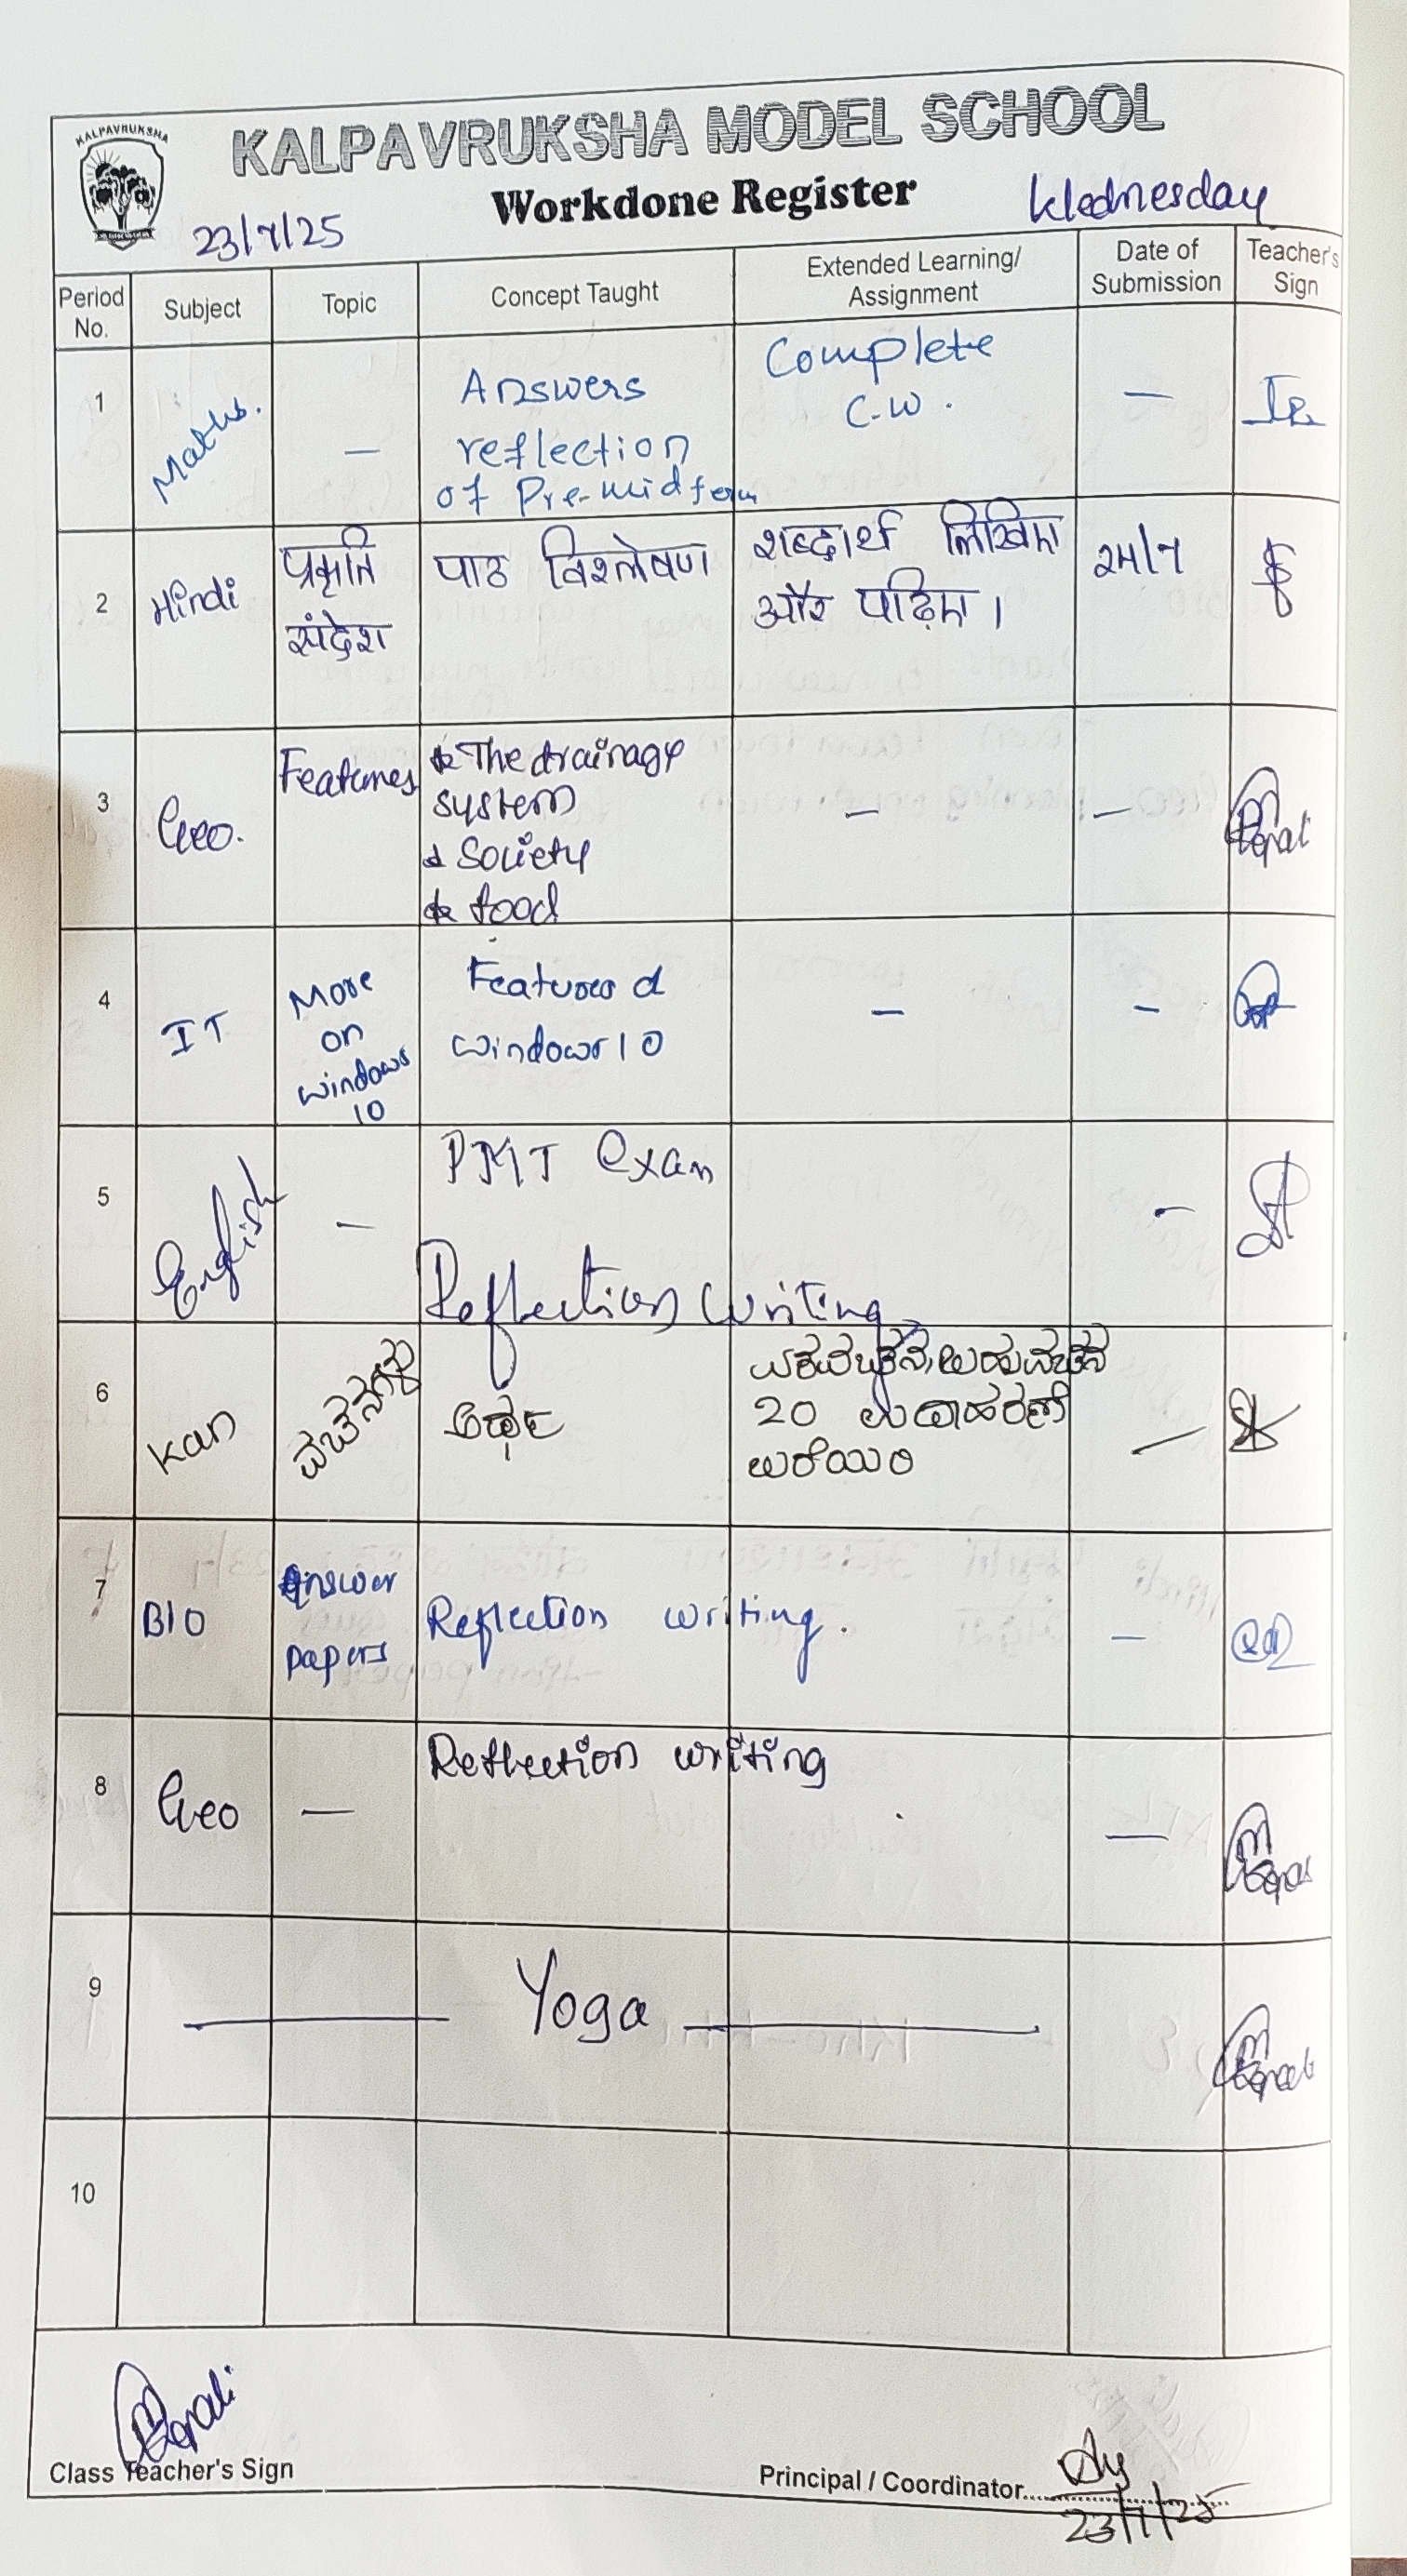 KALPAVRUKSHA
KALPAVRUKSHA MODEL SCHOOL
Workdone Register
23/7/25
Wednesday
Period No.
Subject
Topic
Concept Taught
Extended Learning/
Assignment
Date of
Submission
Teacher's
Sign
1
Maths.
—
Answers
reflection
of Pre-midterm
Complete
C.W.
—
2
Hindi
प्रकृति
संदेश
पाठ विश्लेषण
शब्दार्थ लिखिए
और पढ़िए।
24/7
3
Geo.
Features
* The drainage
system
* Society
* food
—
—
4
IT
More
on
windows
10
Features of
windows 10
—
—
5
English
—
PMT Exam
Reflection writing
—
6
Kan
ವಚನಗಳು
ಅರ್ಥ
ಏಕವಚನ, ಬಹುವಚನ
20 ಉದಾಹರಣೆ
ಬರೆಯಿರಿ
—
7
BIO
Answer
papers
Reflection writing.
—
8
Geo
—
Reflection writing
—
9
Yoga
10
Class Teacher's Sign
Principal / Coordinator
23/7/25